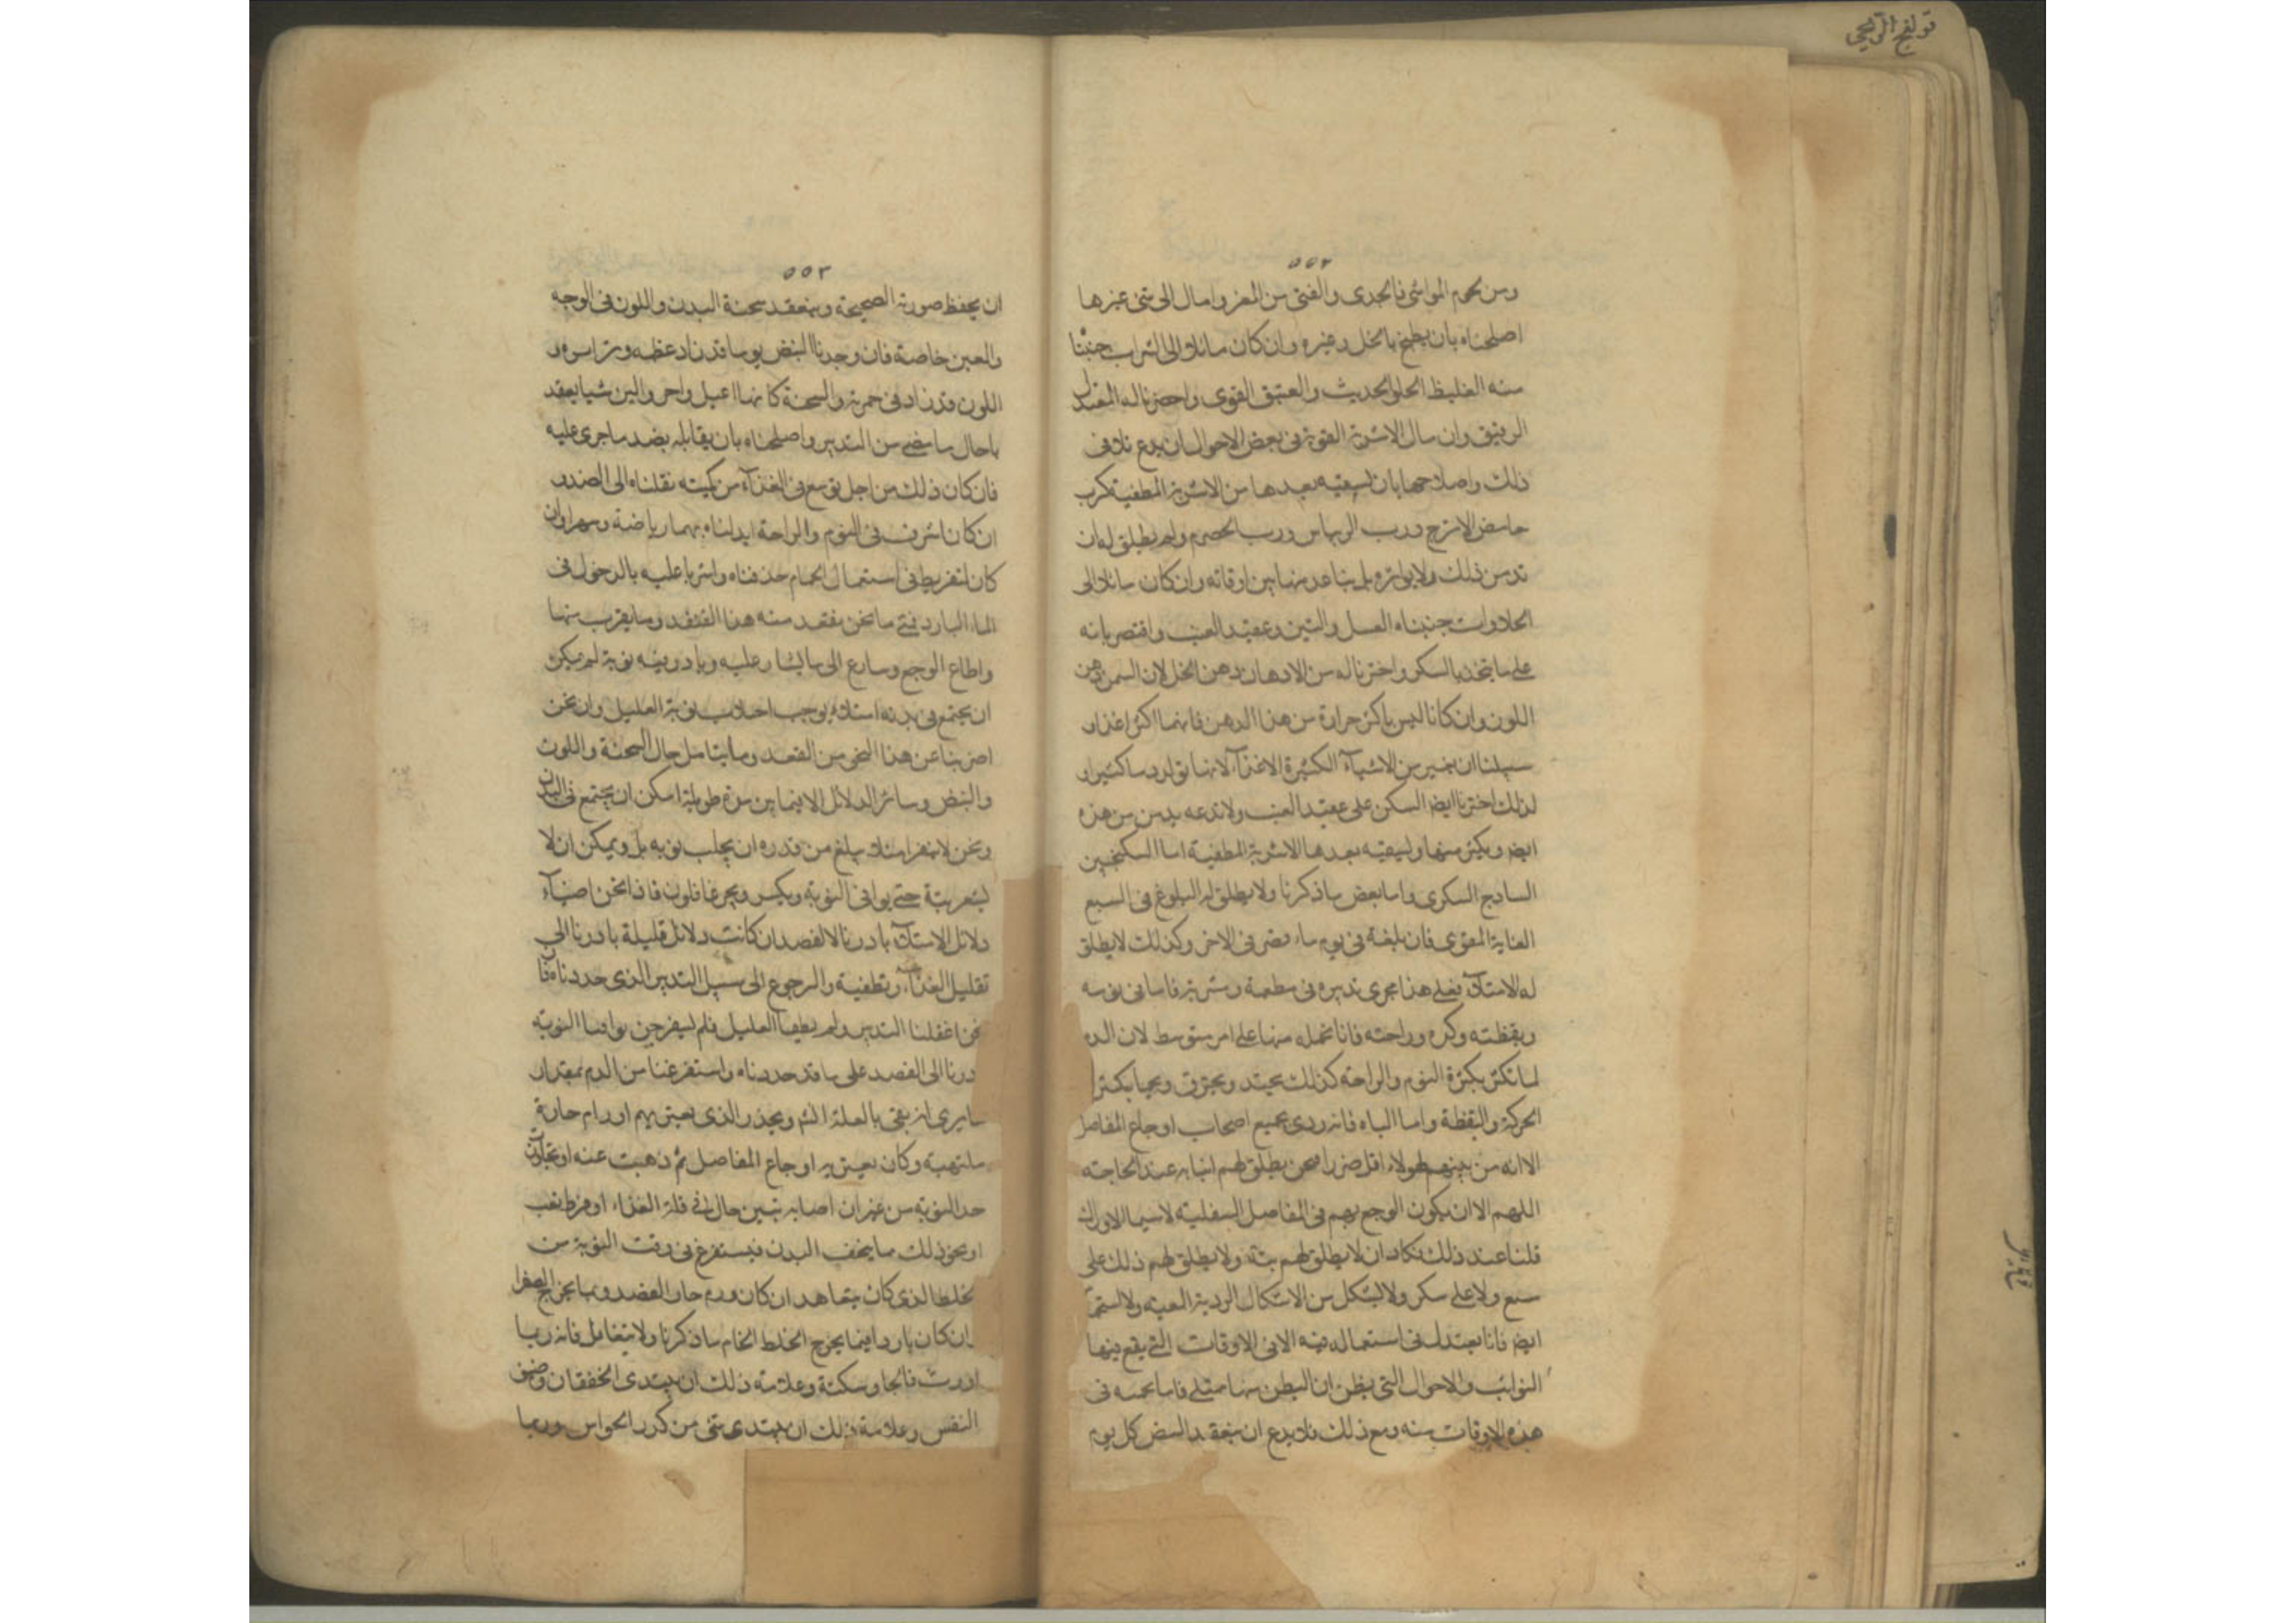 قولنج الريحى
٥٥٢
ومن لحوم المواشى فالجدى والفتى من المعز وامال الى شئ غيرها
اصلحناه بان يطبخ بالخل وغيره وان كان مائلا الى الشراب جنبنا
منه الغليظ الحلو الحديث والعتيق القوى واحضرنا له المعتدل
الرقيق وان سال الاشربة القوية فى بعض الاحوال ان يدع تلافى
ذلك واصلاحها بان يسقيه بعدها من الاشربة المطفية كرب
حامض الاترج ورب الريباس ورب الحصرم ولم يطلق له ان
يدمن ذلك ولا يواتره بل يباعد بينها بين اوقاته وان كان مائلا الى
الحلاوات جنبناه العسل والتين وعقيد العنب واقتصر بانه
على ما يتخذ بالسكر واخترنا له من الادهان دهن الخل لان السمن ودهن
اللوز وان كانا ليس باكثر حرارة من هذا الدهن فانهما اكثر اغذاء و
سبيلنا ان من الاشياء الكثيرة الاغذاء لانها تولد دما كثيرا و
لذلك اخترنا ايضا السكر على عقيد العنب ولا ندعه يدمن من هذه
ايضا ويكثر منها وليسقيه بعدها الاشربة المطفية اما السكنجبين
الساذج السكرى واما بعض ما ذكرنا ولا يطلق له البلوغ فى الشبع
الغاية القصوى فان بلغه فى يوم ما قصر فى الاخر وكذلك لا يطلق
له الامتلاء فعلى هذا يجرى تدبيره فى مطعمه ومشربه فاما فى نومه
ويقظته وكده وراحته فانا نحمله منها على امر متوسط لان الدم
لما تكثر بكثرة النوم والراحة كذلك يحتد ويحترق ويحمى بكثرة
الحركة واليقظة واما الباه فانه ردى بجميع اصحاب اوجاع المفاصل
الا انه من بينهم لهولاء اقل ضررا فنحن نطلق لهم اتيانه عند الحاجة
اللهم الا ان يكون الوجع بهم فى المفاصل السفلية لاسيما الاوراك
فلنا عند ذلك نكاد ان لا يطلق لهم بتة ولا يطلق لهم ذلك على
شبع ولا على سكر ولا بشكل من الاشكال الردية المتعبة والاستحمام
ايضا فانا نعتدل فى استعماله فيه الا فى الاوقات التى يقع فيها
النوائب والاحوال التى يظن ان البطن بها ممتلى فانا نحميه فى
هذه الاوقات منه ومع ذلك فلا يدع ان نتفقد النبض كل يوم
٥٥٣
ان يحفظ صورته الصحيحة ونتفقد سحنة البدن واللون فى الوجه
والعين خاصة فان وجدنا النبض يوما قد زاد عظمه وتواتره و
اللون قد زاد فى حمرته والسحنة كانها اعبل واحر والين شيا نفقد
باحال ما مضى من التدبير واصلحناه بان نقابله بضد ما جرى عليه
فان كان ذلك من اجل توسع فى الغذاء من كميته نقلناه الى الضد و
ان كان اشرف فى النوم والراحة ابدلناه بهما رياضة وسهرا وان
كان لتفريط فى استعمال الحمام حذفناه واشرنا عليه بالدخول فى
الماء البارد فمتى ما نحن نفقد منه هذا التفقد وما يقرب منها
واطاع الوجع وسارع الى ما يشار عليه وبادر فيه نوبة لم يمكن
ان يجتمع فى بدنه امتلاء يوجب اجلاب نوبة العليل وان نحن
اضربنا عن هذا النحو من التفقد وما يتامل حال السحنة واللون
والنبض وسائر الدلائل الا فيما بين مدة طويلة امكن ان يجتمع فى البدن
ونحن لا نشعر امتلاء يبلغ من قدره ان يجلب نوبة بل ويمكن ان لا
يشعر بتة حتى يوافى النوبة ونحن غافلون فاذا نحن
دلائل الامتلاء بادرنا الا الفصد ان كانت دلائل قليلة بادرنا الى
تقليل الغذاء وتطفية والرجوع الى سبيل التدبير الذى حددناه فا
نحن اغفلنا التدبير ولم يطعنا العليل فلم يشعر حين توافينا النوبة
درنا الى الفصد على ما قد حددناه واستفرغنا من الدم بمقدار
ما يرى ان يفى بالعلة الذى يعتريهم اورام حارة
ملتهبة وكان يعتريه اوجاع المفاصل ثم ذهبت عنه او تجاوزت
حد النوبة من غير ان اصابه تبين حال فى قلة الغذاء او فرط تعب
او نحو ذلك مما يخفف البدن فيستفرغ فى وقت النوبة من
الخلط الذى كان يتعاهد ان كان ورم حار الفصد وبما يخرج الصفرا
وان كان باردا فبما يخرج الخلط الخام ما ذكرنا ولا يتغافل فانه ربما
اورث فالجا وسكتة وعلامة ذلك ان يبتدى الخفقان وضيق
النفس وعلامة ذلك ان يبتدى شئ من كدر الحواس وربما